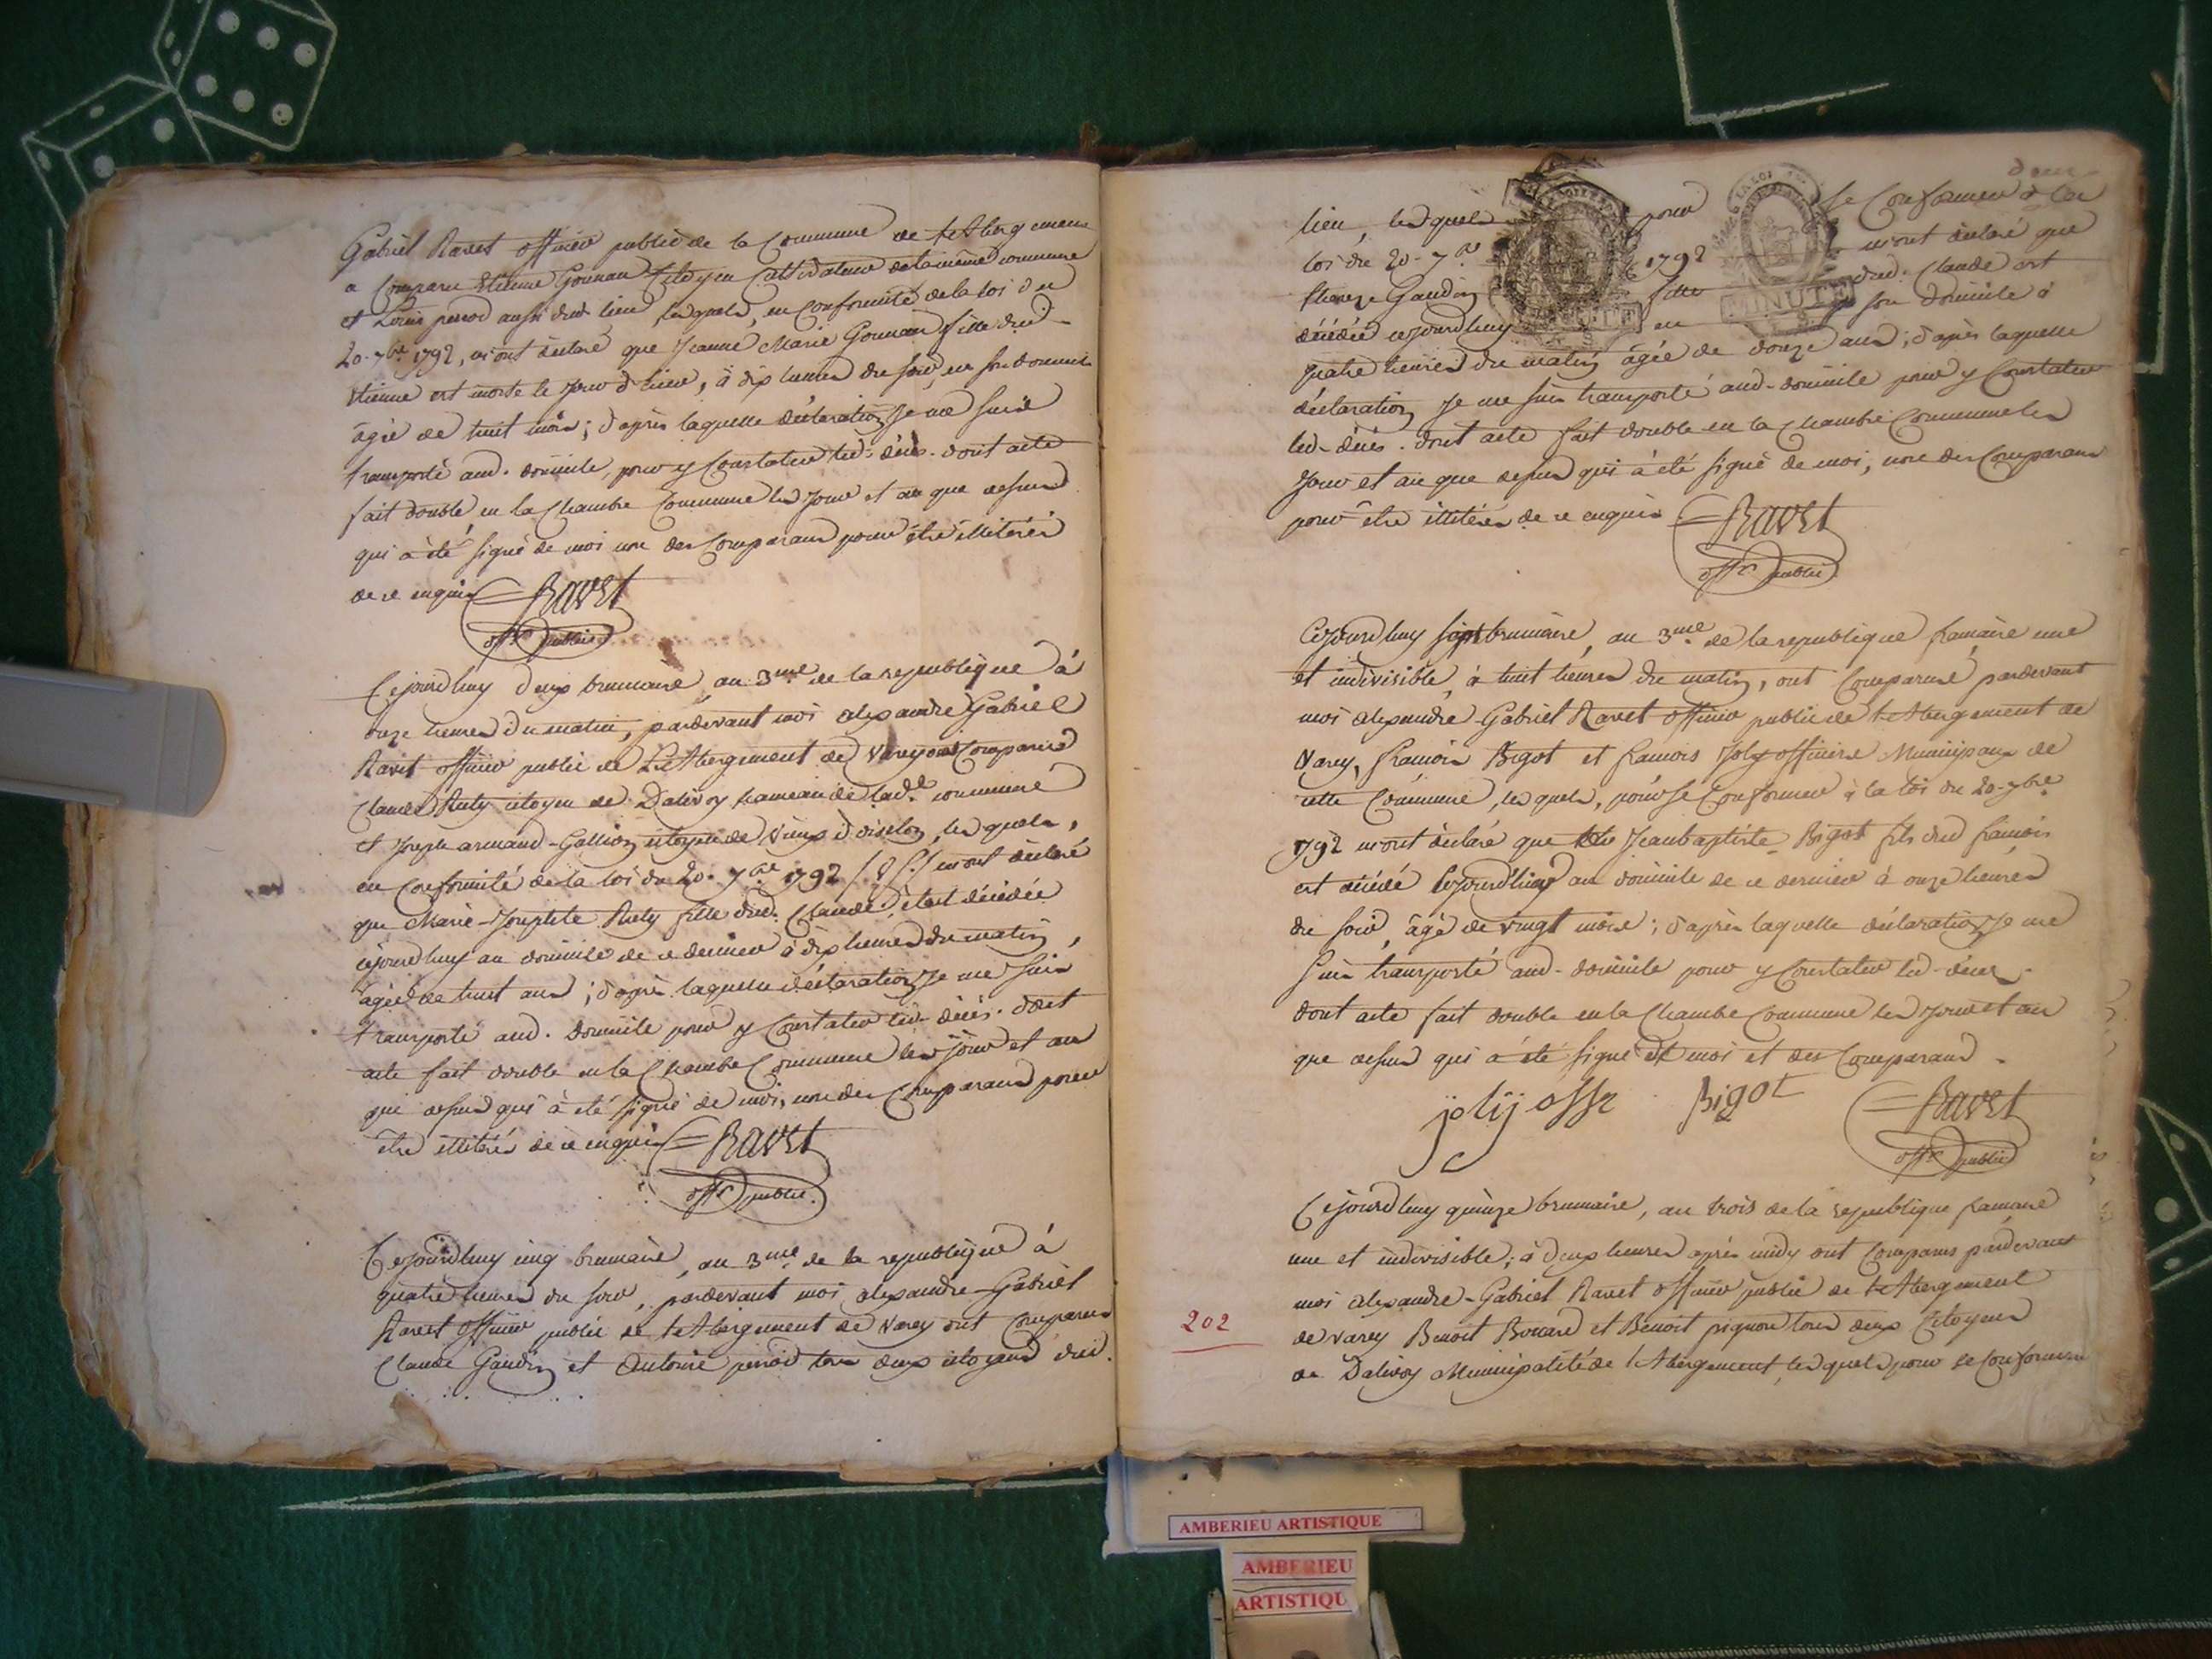 Gabriel Ravet officier public de la Commune de LeAbergement
a Comparu Etienne Gounan Citoyen Cultivateur de la même commune
et Louis perrod aussi dud. lieu, lesquels, en Conformité de la loi du
20. 7bre 1792, m'ont déclaré que Jeanne Marie Gounan fille dud.
Etienne est morte le Jour d'hier, à dix heures du soir, en son domicile
âgée de huit mois; d'après laquelle déclaration Je me suis
transporté aud. domicile, pour y Constater led. décès. dont acte
fait double en la Chambre Commune les Jour et an que dessus
qui a été signé de moi non des Comparans pour être illitérés
de ce enquis Ravet
offr public
Cejourdhuy deux brumaire, an 3me de la republique à
onze heures du matin, pardevant moi alexandre Gabriel
Ravet officier public de LeAbergement de Varey ont Comparus
Claude Ruty citoyen de Dalivoy hameau de lade commune
et Joseph armand Gallion citoyen de Vieux d'oiselon, lesquels,
en Conformité de la loi du 20. 7bre 1792 m'ont déclaré
que Marie-Josephte Ruty fille dud. Claude, étoit décédée
cejourdhuy au domicile de ce dernier à dix heures du matin,
âgée de huit ans; d'après laquelle déclaration Je me suis
transporté aud. domicile pour y Constater led. décès. dont
acte fait double en la Chambre Commune les jour et an
que dessus qui à été signé de moi, non des Comparans pour
être illitérés de ce enquis Ravet
offr public.
Cejourdhuy cinq brumaire, an 3me de la republique à
quatre heures du soir, pardevant moi alexandre-Gabriel
Ravet officier public de LeAbergement de Varey ont Comparus
Claude Gaudin et Antoine perrod tous deux citoyens dud.
deux
lieu, lesquels pour se Conformer à la
loi du 20. 7bre 1792 m'ont déclaré que
Gaudin fille dud. Claude est
décédée cejourdhuy en son domicile à
quatre heures du matin âgée de douze ans; d'après laquelle
déclaration Je me suis transporté aud. domicile pour y Constater
led. décès. dont acte fait double en la Chambre Commune les
Jour et an que dessus qui à été signé de moi, non des Comparans
pour être illitérés de ce enquis Ravet
offr public
MINUTE
Cejourdhuy sept brumaire, an 3me de la republique francaise une
et indivisible, à huit heures du matin, ont Comparus pardevant
moi alexandre-Gabriel Ravet officier public de LeAbergement de
Varey, francois Bigot et francois Joly officiers Municipaux de
cette Commune, lesquels, pour se Conformer à la loi du 20. 7bre
1792 m'ont déclaré que Jean baptiste Bigot fils dud francois
est décédé au domicile de ce dernier à onze heures
du soir, âgé de vingt mois; d'après laquelle déclaration Je me
suis transporté aud. domicile pour y Constater led. décès.
dont acte fait double en la Chambre Commune les Jour et an
que dessus qui à été signé de moi et des Comparans.
jolij offr Bigot Ravet
offr public
Cejourdhuy quinze brumaire, an trois de la republique francaise
une et indivisible; à deux heures après midy ont Comparus pardevant
moi alexandre-Gabriel Ravet officier public de LeAbergement
de Varey Benoit Bouard et Benoit pignon tous deux Citoyens
de Dalivoy Municipalité de LeAbergement, lesquels pour se Conformer
202
AMBERIEU ARTISTIQUE
AMBERIEU
ARTISTIQU